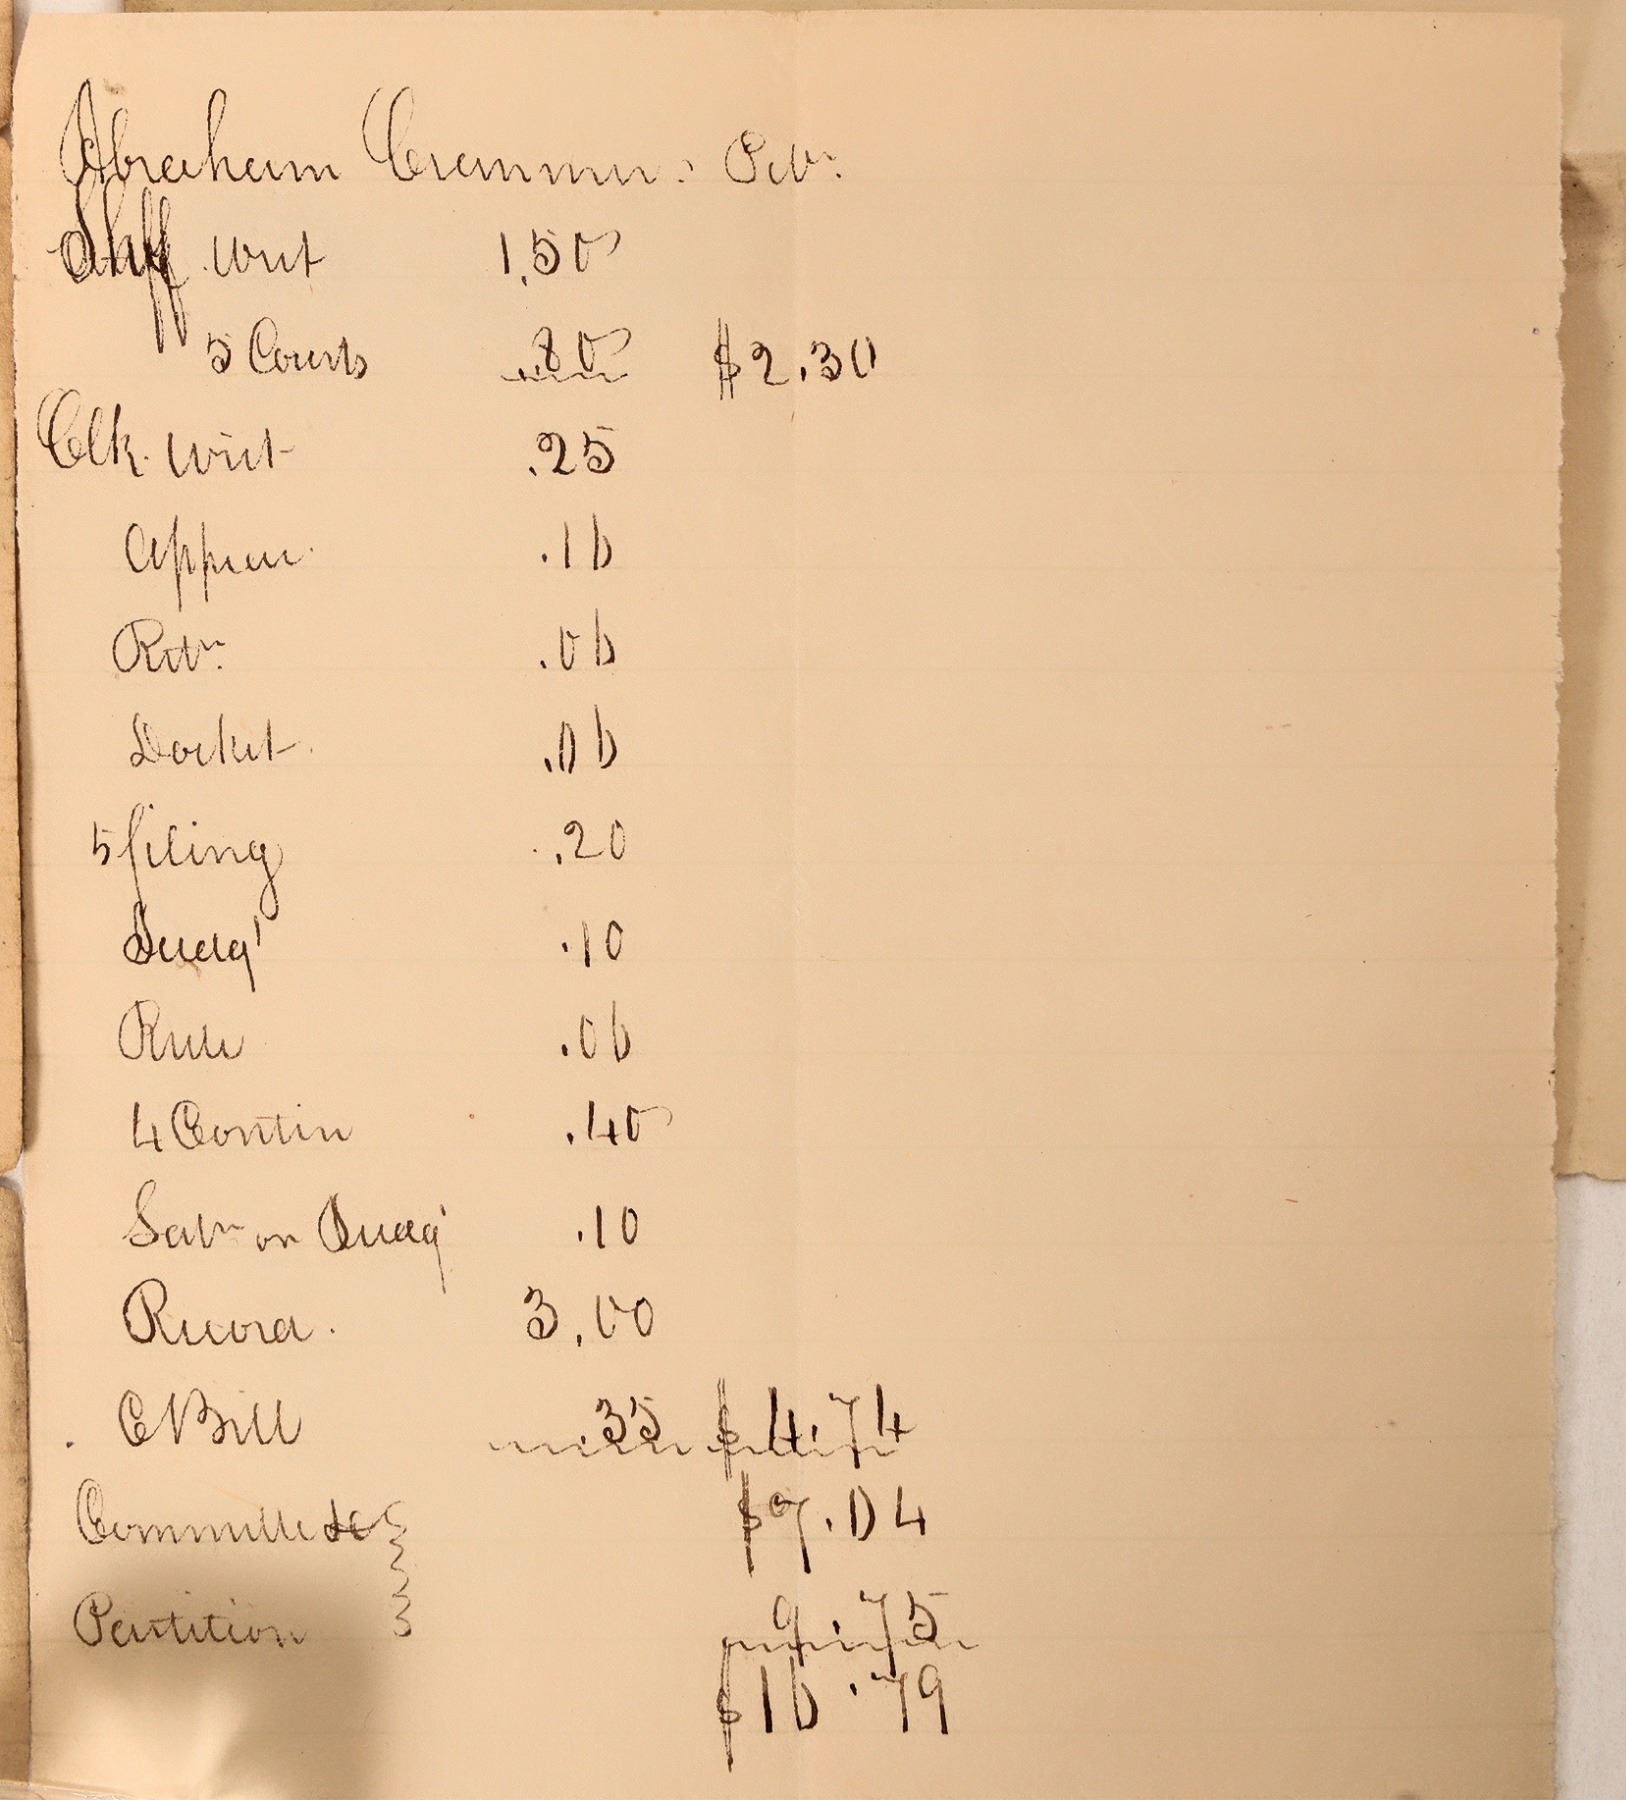 Abraham Crammer. Petn.
Shff. Writ 1.50
5 Courts .80 $2.30
Clk. Writ .25
Appear. .16
Retn. .06
Docket. .06
5 filing .20
Judg' .10
Rule .06
4 Contin .40
Satn on Judg' .10
Record. 3.00
C Bill .35 $4.74
Committee $7.04
Partition 9.75
$16.79